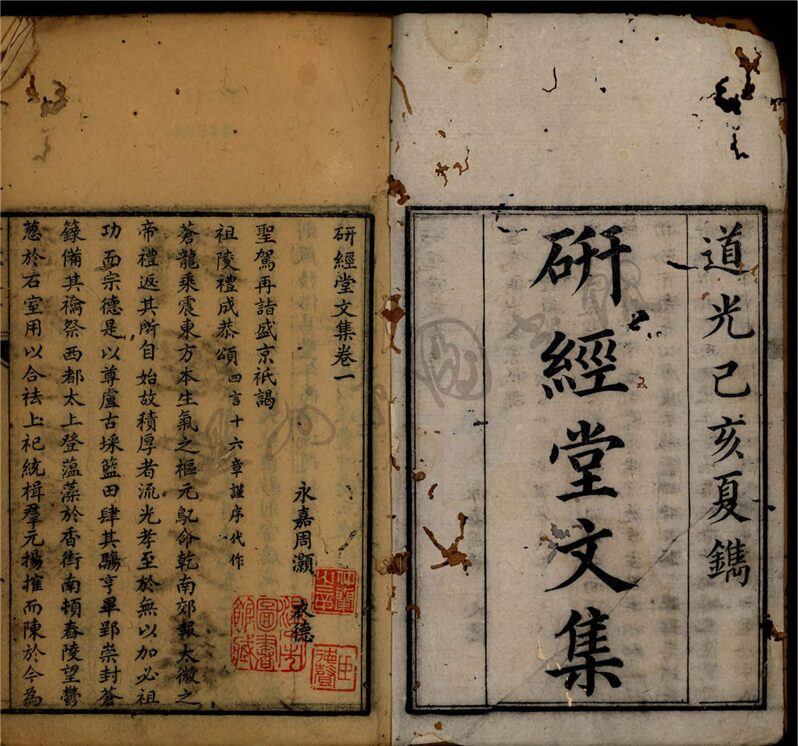 道光己亥夏鐫
研經堂文集
研經堂文集卷一
永嘉周灝 永德
聖駕再詣盛京祇謁
祖陵禮成恭頌 四言十六章謹序代作
蒼龍乘震東方本生氣之樞元鳦命乾南郊報太微之
帝禮返其所自始故積厚者流光孝至於無以加必祖
功而宗德是以尊盧古埰籃田肆其觴亨畢郢崇封蒼
籙備其禴祭西都太上登薀藻於香街南頓舂陵望鬱
蔥於石室用以合祛上祀統楫羣元揚搉而陳於今為
圖書
館藏